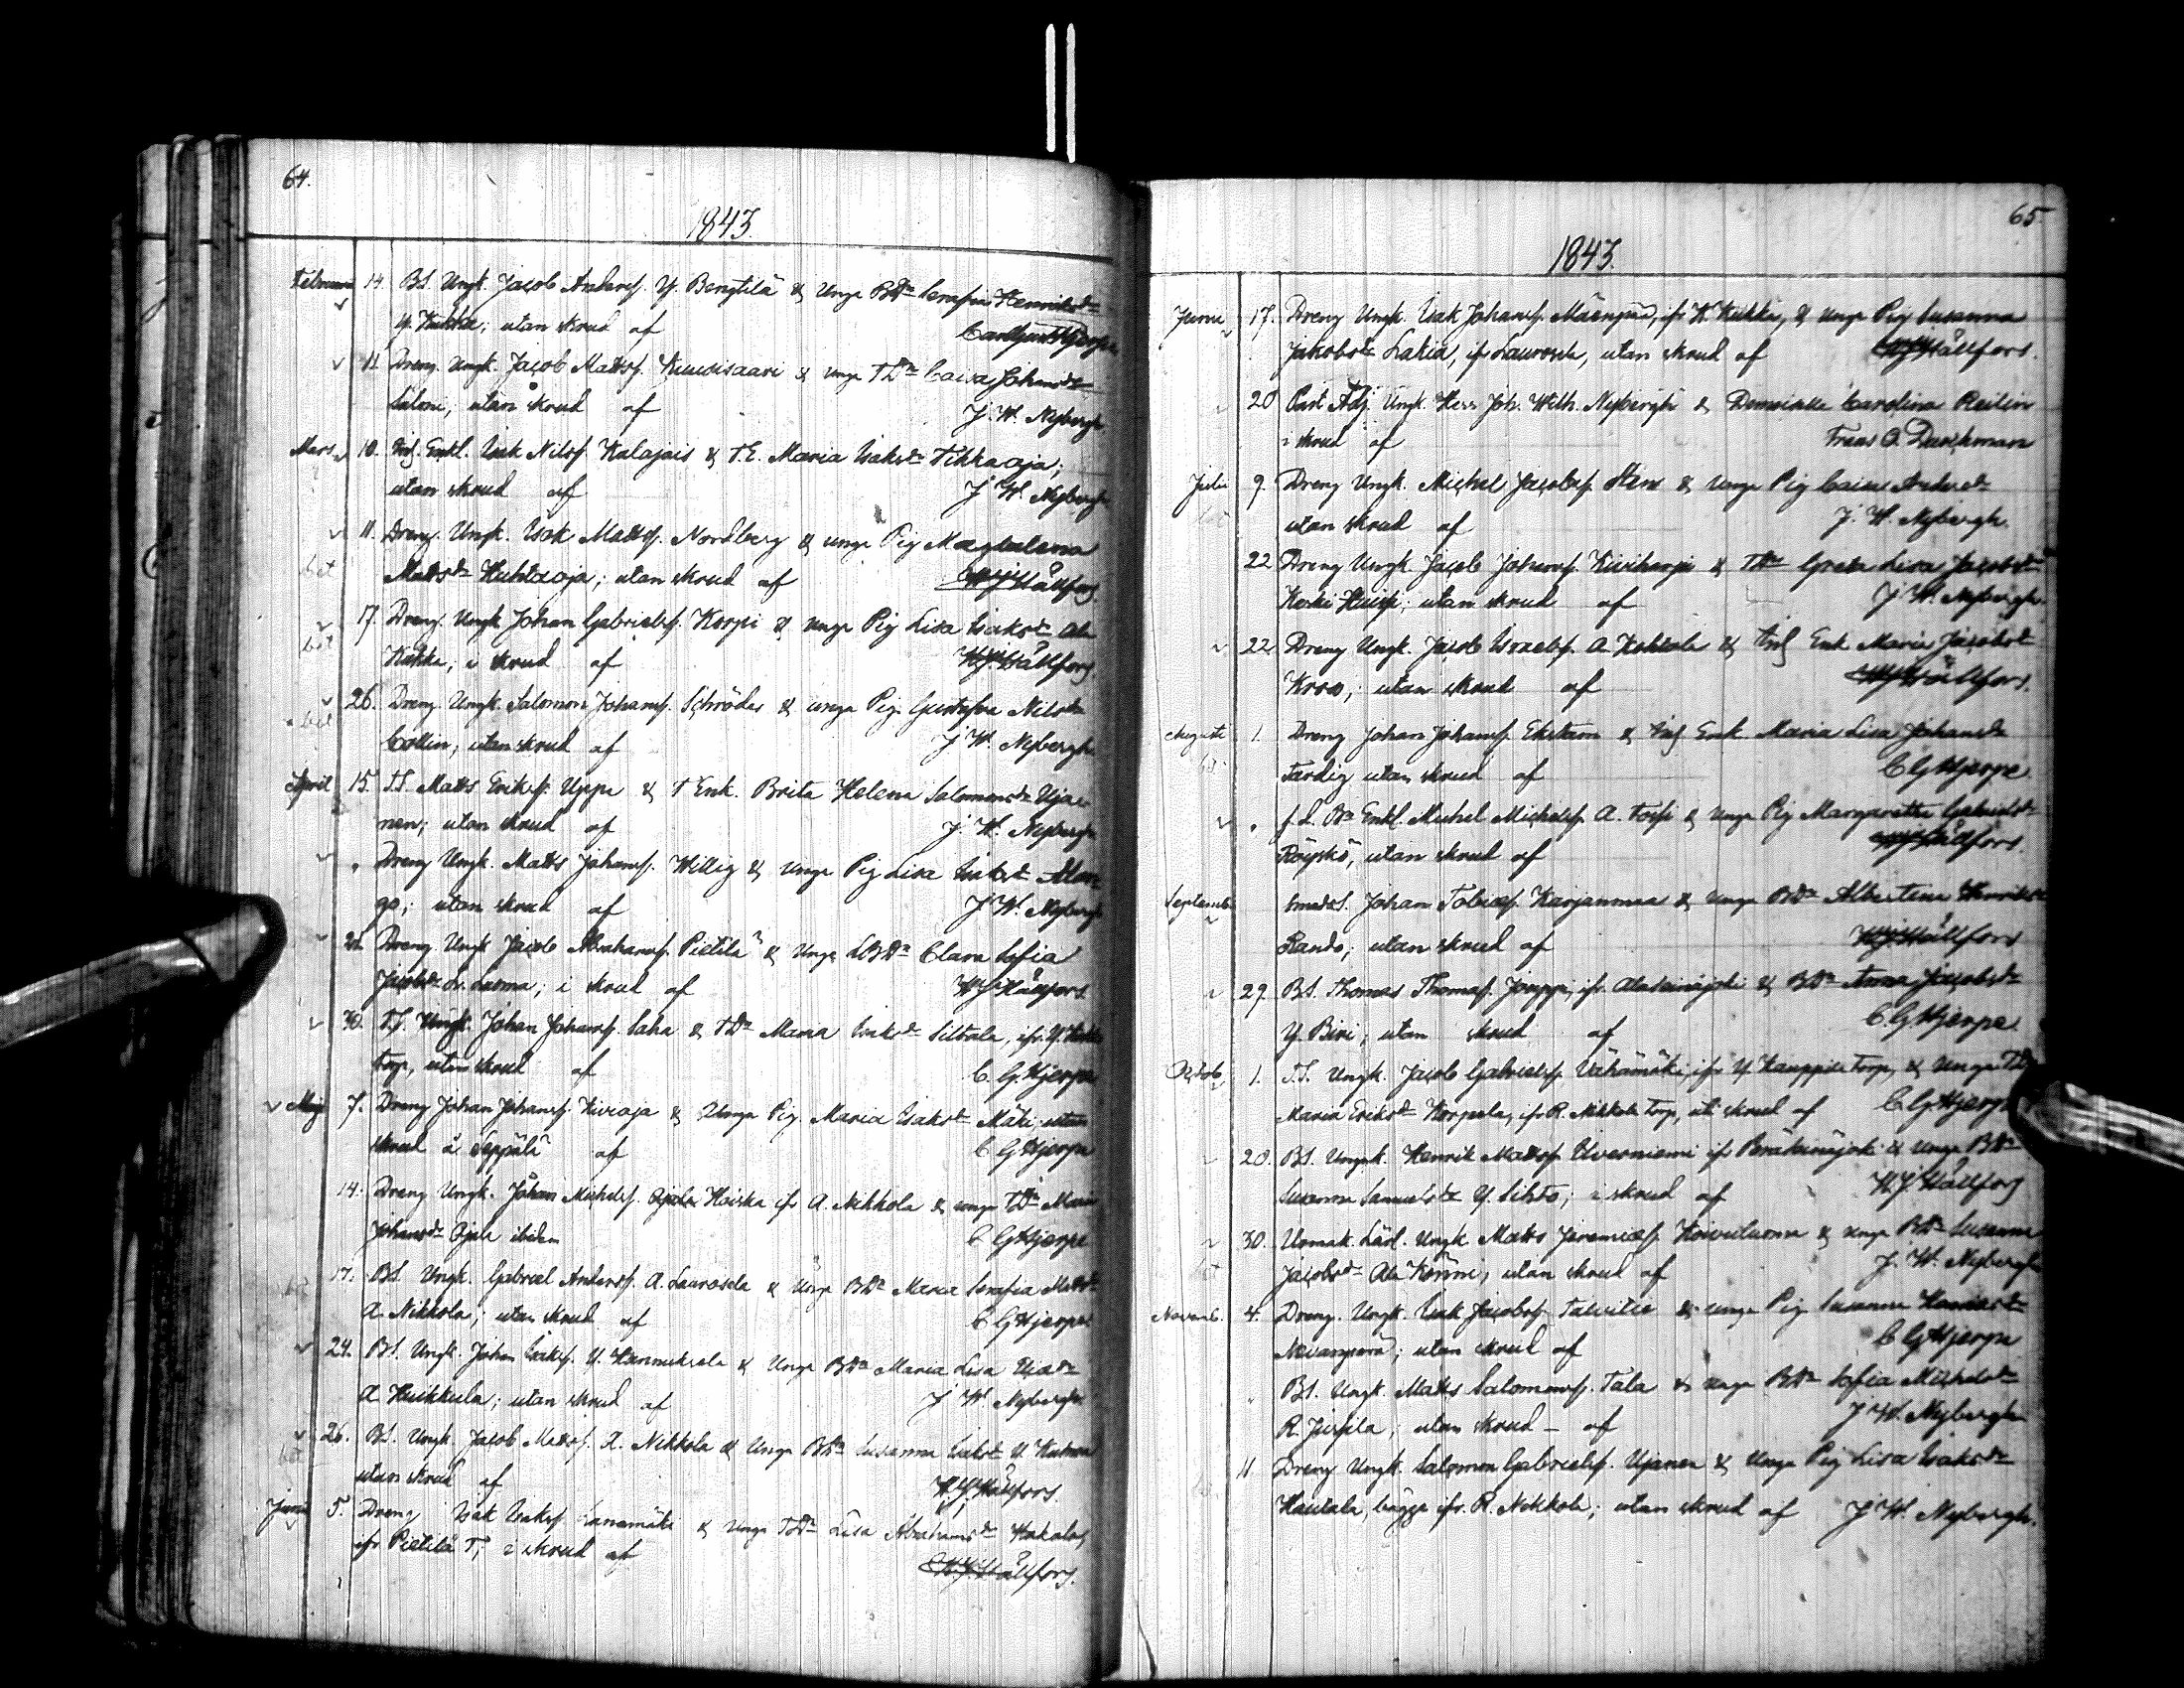 64.
1843.
Februarii 14. BS. Ungk. Jacob Andersf. Y. Bengtilä & Unga BDr Serafia Henriksdr
Y. Kukka; utan skrud af
11. Dreng. Ungk. Jacob Mattsf. & unga TDr Caisa Johansdr
Salone; utan skrud af J. W. Nybergh
Mars 10. Enkl. Isak Nilsf. Kalajais & T.E. Maria Isaksdr Tikkaoja;
utan skrud af J. W. Nybergh
11. Dreng. Ungk. Isak Mattsf. Nordberg & unga Pig Magdalena
bet Mattsdr Huhtaoja; utan skrud af H. J. Hållfors.
17. Dreng. Ungk Johan Gabrielsf. Korpi & unga Pig Lisa Isaksdr Ala
bet Kukka, i skrud af H. J. Hållfors.
26. Dreng Ungk. Salomon Johansf. Schröder & unga Pig. Gustafva Nilsdr
bet Collin; utan skrud af J. W. Nybergh
April 15. T.S. Matts Eriksf. Uppa & T Enk. Brita Helena Salomonsdr Ujai
nen; utan skrud af J. W. Nybergh
" Dreng Ungk. Matts Johansf. Willig & unga Pig Lisa Isaksdr
go; utan skrud af J. W. Nybergh
Dreng Ungk Jacob Abrahamsf. Pietilä & Unga LBDr Clara Sofia
Jacobsdr Luoma; i skrud af H. J. Hållfors
30. T.S. Ungk. Johan Johansf. Saha & TDr Maria Isaksdr Siltala, ifr. Y.
torp, utan skrud af C. G. Hjerpe
Maji 7. Dreng Johan Johansf. Kivioja & Unga Pig. Maria Isaksdr Mäki, utan
skrud å Seppälä af C. G. Hjerpe
14. Dreng Ungk. Johan Michelsf. Hoiska ifr A. Nikkola & unga TDr Maria
Johansdr Ojala ibidem C. G. Hjerpe
17. BS. Ungk. Gabriel Andersf. A. Laurosela & Unga BDr Maria Serafia Mattsdr
A. Nikkola; utan skrud af C. G. Hjerpe
24. BS. Ungk. Johan Isaksf. Y. Hannuksela & Unga BDr Maria Lisa
A Huikkula; utan skrud af J. W. Nybergh
26. BS. Ungk. Jacob Mattsf. R. Nikkola & Unga BDr Susanna Isaksdr
bet utan skrud af H. J. Hållfors.
Junii 5. Dreng Isak Isaksf. Lanamäki & Unga TDr Lisa Abrahamsdr Hakala,
ifr Pietilä T, i skrud af H. J. Hållfors.
65
1843.
Junii 17. Dreng Ungk. Isak Johansf. Mäenpää, ifr. K. Kukka, & unga Pig Susanna
Jakobsdr Lakia, ifr Laurosela, utan skrud af H J Hållfors.
20 Past. Adj. Ungk. Herr Joh. Wilh. Nybergh & Demoiselle Carolina Reilin
i skrud af Frans O. Durchman
Julii 9. Dreng Ungk. Michel Jacobsf. Sten & unga Pig Caisa Andersdr
bet utan skrud af J. W. Nybergh.
22 Dreng Ungk. Jacob Johansf. Kiviharju & TDr Greta Lisa Jacobsdr
Koski Huisp; utan skrud af J. W. Nybergh.
22 Dreng Ungk. Jacob Israelsf. A. Kohtala & Enk Maria Jacobsdr
Kroo; utan skrud af H J Hållfors.
Augusti 1. Dreng Johan Johansf. Ekstam & Enk Maria Lisa Johansdr
Färdig utan skrud af C G Hjerpe
" Enkl. Michel Michelsf. A. & Unga Pig Margaretha Gabrielsdr
Röyskö, utan skrud af H J Hållfors.
Septemb. SmedsS. Johan Tobiasf. Karjanmaa & Unga BDr Albertina Henriksdr
Rando; utan skrud af H J Hållfors
29. BS. Thomas Thomasf. Jouppi, ifr. Alaseinäjoki & BDr Anna Jacobsdr
Y. Biri; utan skrud af C. G. Hjerpe
Octob. 1. T.S. Ungk. Jacob Gabrielsf. Vähämäki, ifr Y Kauppila Torp, & Unga TDr
Maria Eriksdr Korpela, ifr R. Nikkola Torp, utan skrud af C G Hjerpe
20. BS. Ungk. Henrik Mattsf. ifr Peräseinäjoki & Unga BDr
Susanna Samuelsdr Y. Sihto; i skrud af H J Hållfors
30. Urmak. Lärl. Ungk Matts Jeremiasf. Koivuluoma & Unga BDr Susanna
bet Jacobsdr Ala Könni, utan skrud af J. W. Nybergh
Novemb. 4. Dreng. Ungk. Isak Jacobsf. Talvitie & unga Pig Susanna
Nevanperä; utan skrud af C G Hjerpe
" BS. Ungk. Matts Salomonsf. Tala & unga BDr Sofia Michelsdr
R. Jussila; utan skrud – af J. W. Nybergh
11 Dreng Ungk. Salomon Gabrielsf. Ujanen & Unga Pig Lisa Isaksdr
Hautala, bägge ifr. R. Nikkola; utan skrud af J. W. Nybergh.